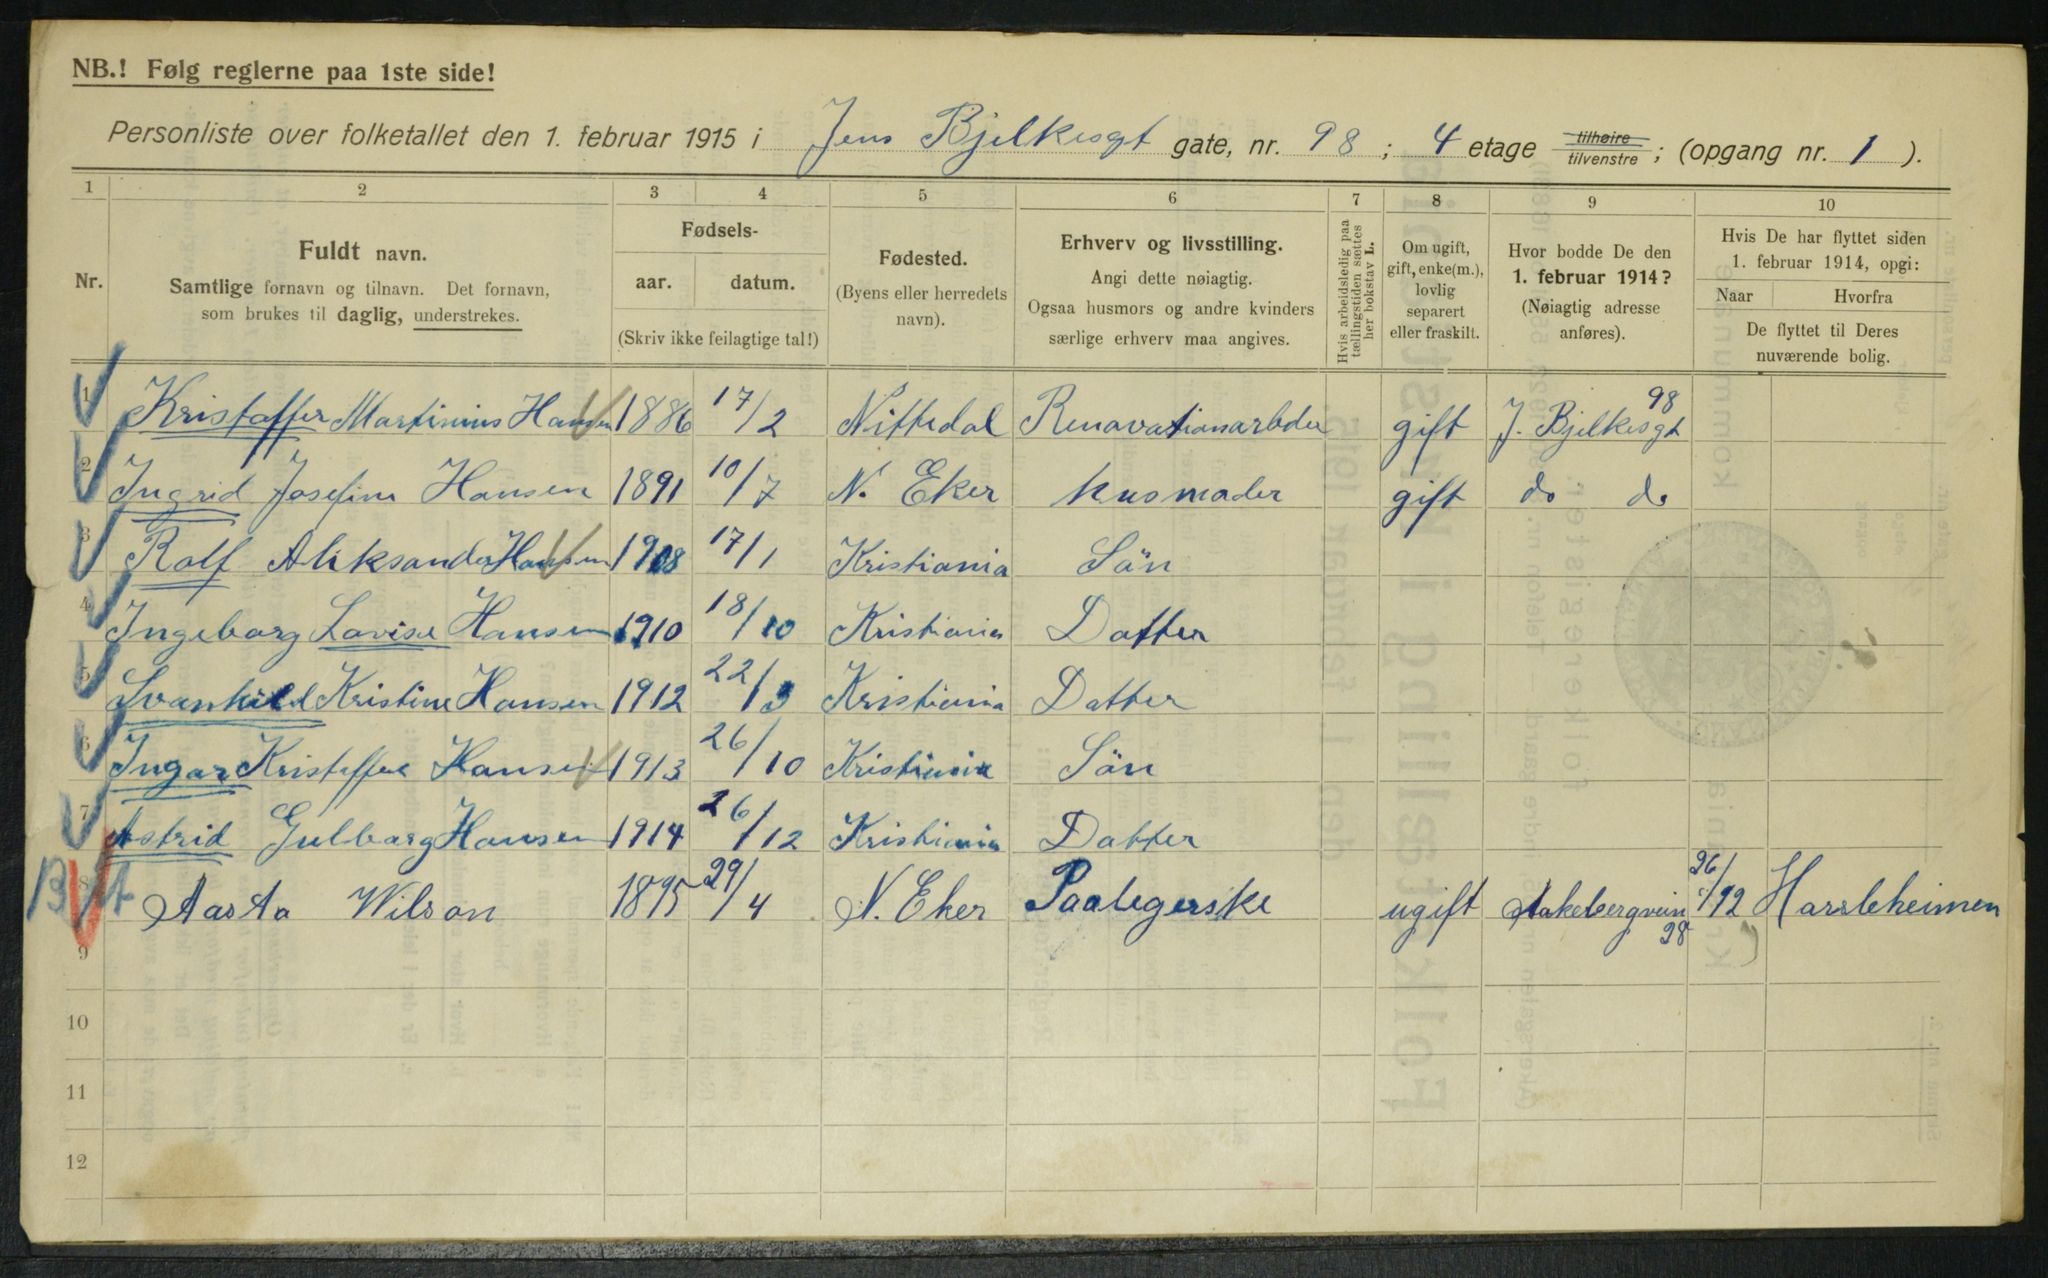 NB.! Følg reglerne paa 1ste side!
Personliste over folketallet den 1. februar 1915 i Jens Bjelkesgt gate, nr. 98 ; 4 etage tilhøire tilvenstre ; (opgang nr. 1 ).
1 2 3 4 5 6 7 8 9 10
Nr.
Fuldt navn.
Samtlige fornavn og tilnavn. Det fornavn,
som brukes til daglig, understrekes.
Fødsels-
aar. datum.
(Skriv ikke feilagtige tal!)
Fødested.
(Byens eller herredets
navn).
Erhverv og livsstilling.
Angi dette nøiagtig.
Ogsaa husmors og andre kvinders
særlige erhverv maa angives.
Hvis arbeidsledig paa
tællingstiden sættes
her bokstav L.
Om ugift,
gift, enke(m.),
lovlig
separert
eller fraskilt.
Hvor bodde De den
1. februar 1914?
(Nøiagtig adresse
anføres).
Hvis De har flyttet siden
1. februar 1914, opgi:
Naar Hvorfra
De flyttet til Deres
nuværende bolig.
1 Kristoffer Martinius Hansen 1886 17/2 Nittedal Renovationarbeder gift J. Bjelkesgt 98
2 Ingrid Josefine Hansen 1891 10/7 N. Eker husmoder gift do do
3 Rolf Aleksander Hansen 1908 17/1 Kristiania Sön
4 Ingeborg Lovise Hansen 1910 18/10 Kristiania Datter
5 Svanhild Kristine Hansen 1912 22/3 Kristiania Datter
6 Ingar Kristoffer Hansen 1913 26/10 Kristiania Sön
7 Astrid Gulborg Hansen 1914 26/12 Kristiania Datter
8 Aasta Wilson 1895 29/4 N. Eker Paalegerske ugift Aakebergvein 28 26/12 Harsleheimen
9
10
11
12